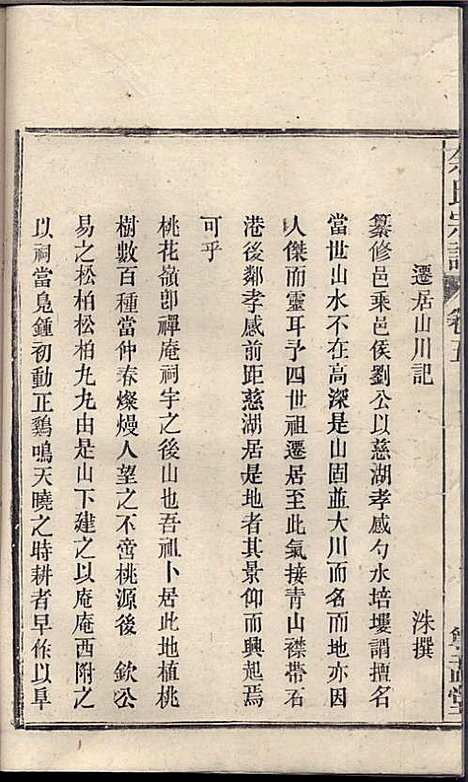 遷居山川記
洙撰
纂修邑乘邑侯劉公以慈湖孝感勺水培塿謂擅名
當世山水不在高深是山固並大川而名而地亦因
人傑而靈耳予四世祖遷居至此氣接青山襟帶石
港後鄰孝感前距慈湖居是地者其景仰而興起焉
可乎
桃花嶺卽禪庵祠宇之後山也吾祖卜居此地植桃
樹數百種當仲春燦熳人望之不啻桃源後 欽公
易之松柏松柏九九由是山下建之以庵庵西附之
以祠當鳧鍾初動正鷄鳴天曉之時耕者早作以早
氏宗譜
卷五